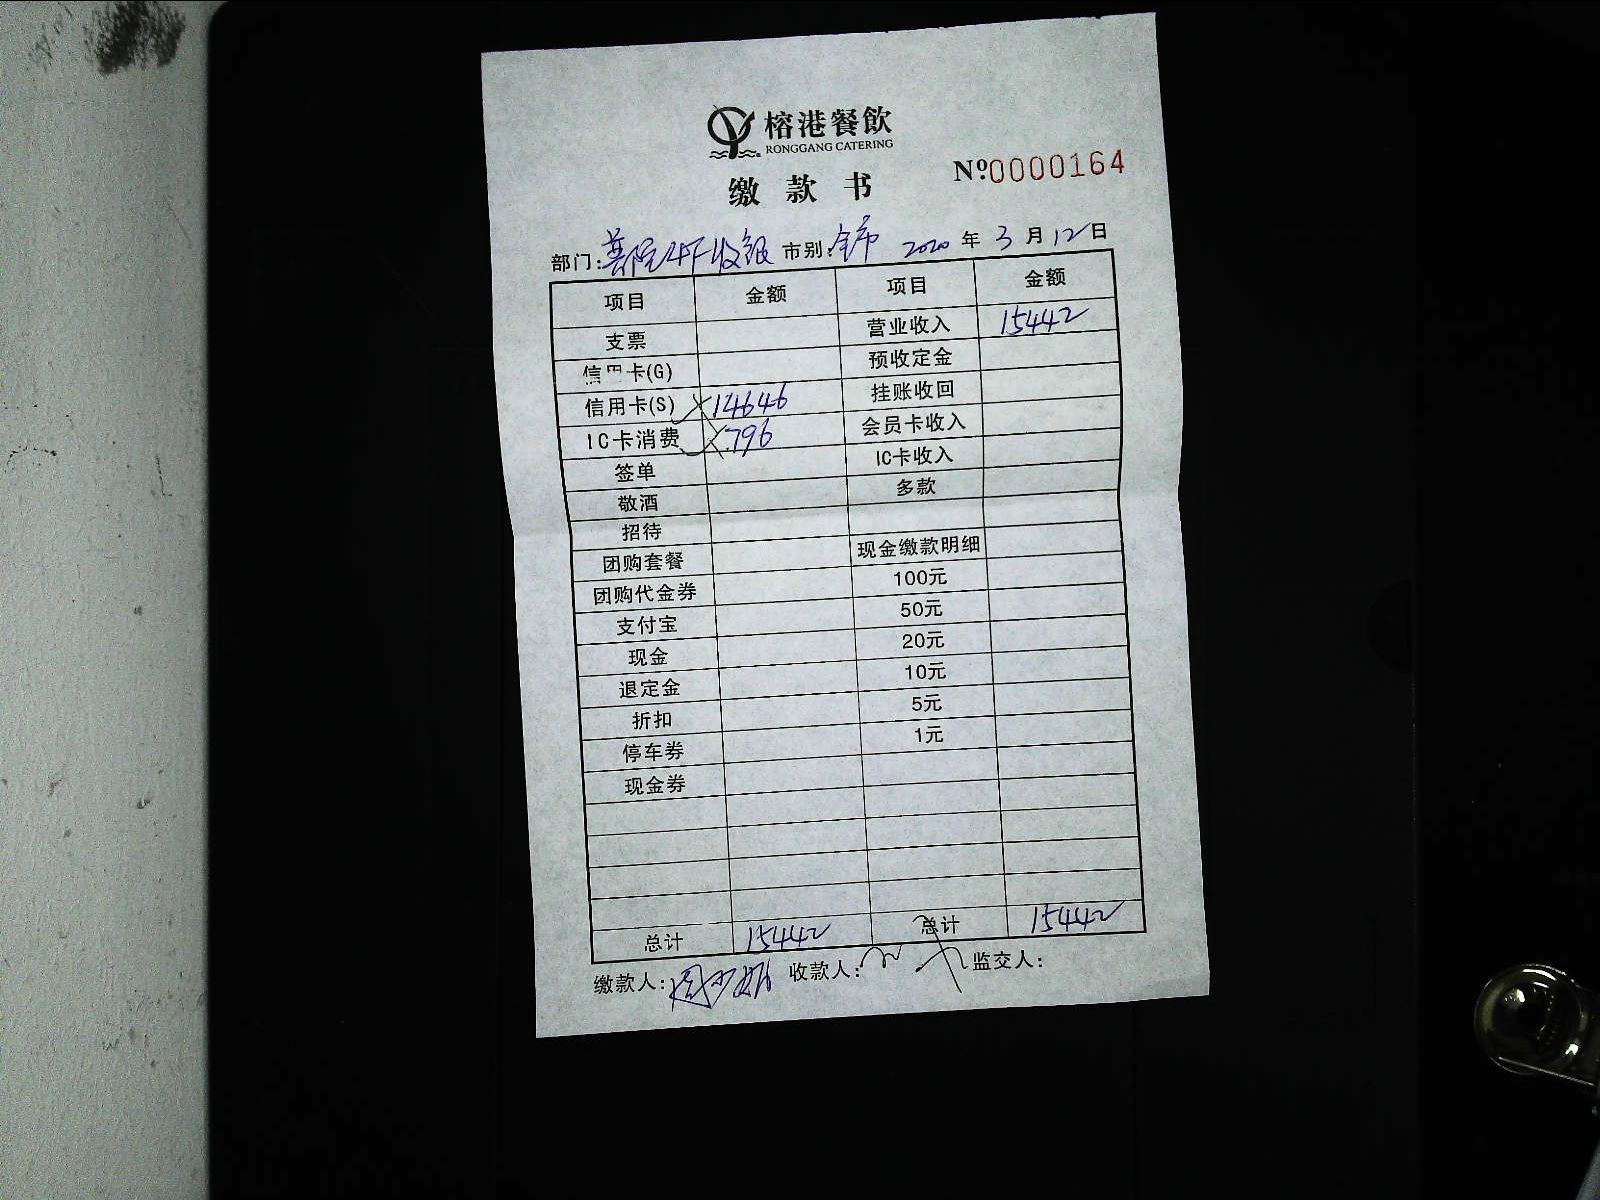 榕港餐飲
RONGGANG CATERING
Nº:0000164
缴款书
部门: 4F收银 市别: 全市 2020年3月12日
项目 金额 项目 金额
支票 营业收入 15442
信用卡(G) 预收定金
信用卡(S) 14646 挂账收回
IC卡消费 796 会员卡收入
签单 IC卡收入
敬酒 多款
招待
团购套餐 现金缴款明细
团购代金券 100元
支付宝 50元
现金 20元
退定金 10元
折扣 5元
停车券 1元
现金券
总计 15442 总计 15442
缴款人: 收款人: 监交人: